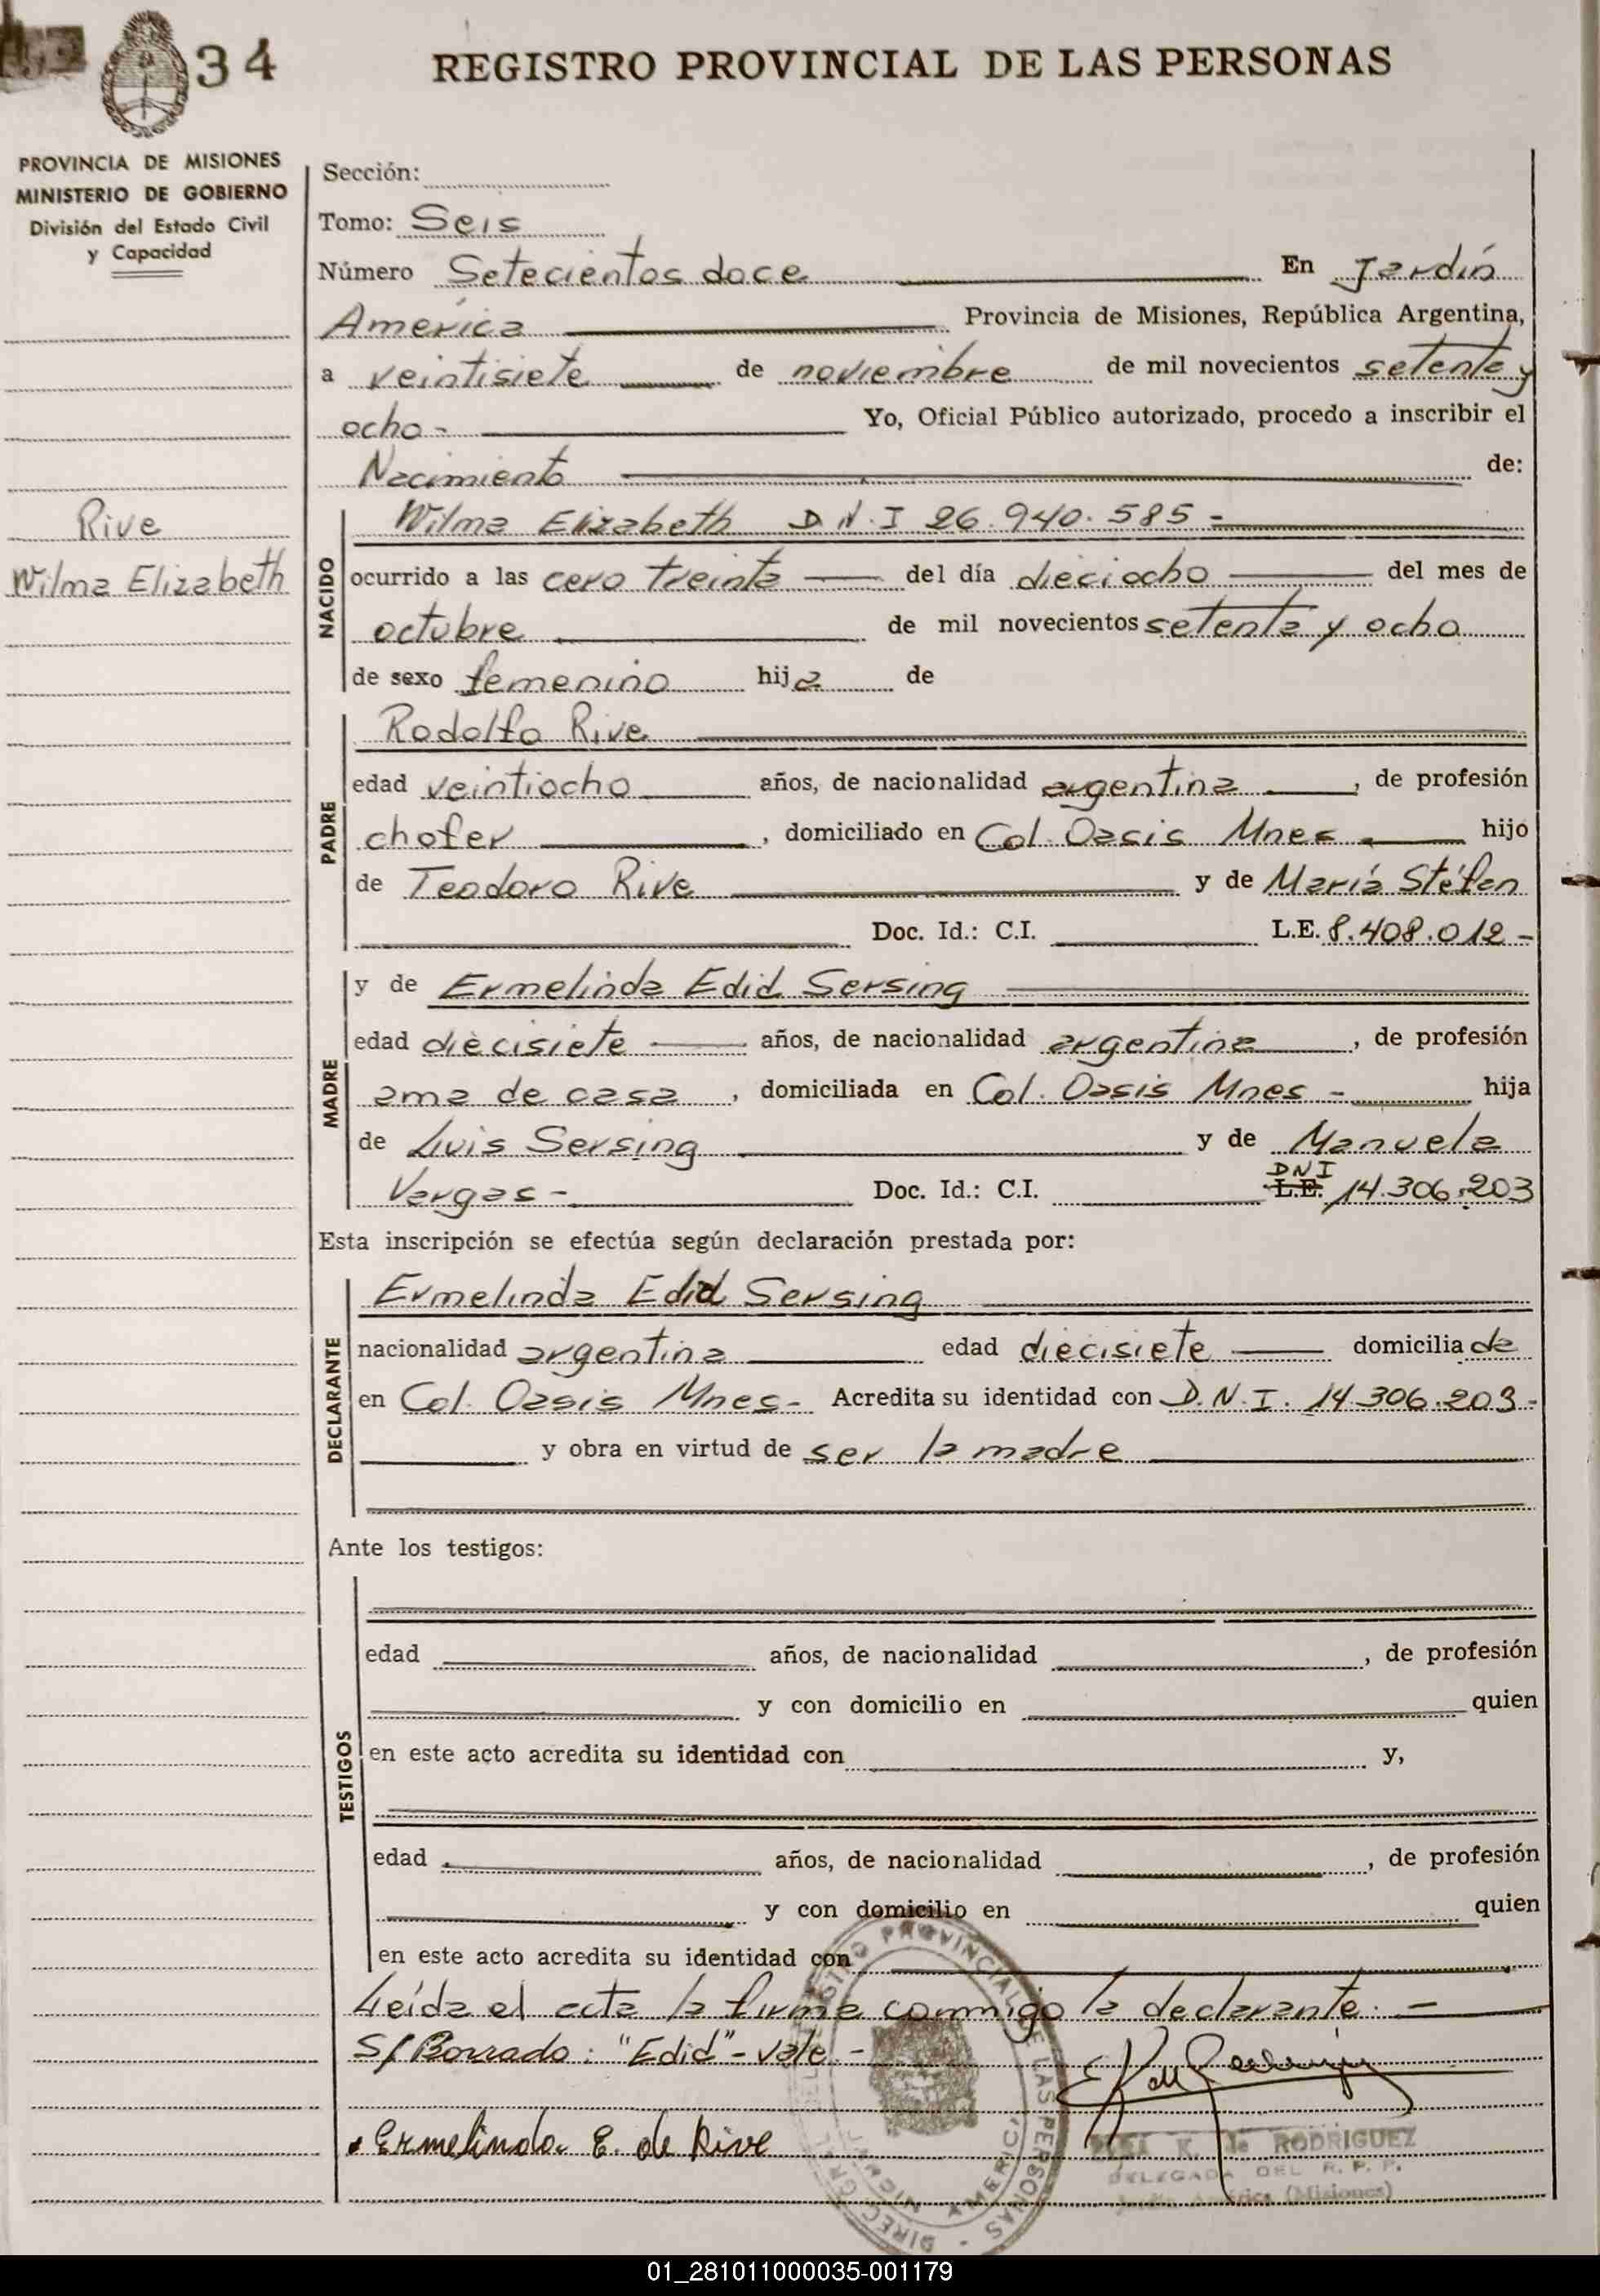 34
REGISTRO PROVINCIAL DE LAS PERSONAS
PROVINCIA DE MISIONES
MINISTERIO DE GOBIERNO
División del Estado Civil
y Capacidad
Sección:
Tomo: Seis
Número Setecientos doce En Jardín
América Provincia de Misiones, República Argentina,
a veintisiete de noviembre de mil novecientos setenta y
ocho - Yo, Oficial Público autorizado, procedo a inscribir el
Nacimiento de:
Rive
Wilma Elizabeth
NACIDO
Wilma Elizabeth D.N.I 26.940.585 -
ocurrido a las cero treinta del día dieciocho del mes de
octubre de mil novecientos setenta y ocho
de sexo femenino hija de
PADRE
Rodolfo Rive
edad veintiocho años, de nacionalidad argentina, de profesión
chofer, domiciliado en Col. Oasis Mnes hijo
de Teodoro Rive y de María Stéfan
Doc. Id.: C.I. L.E. 8.408.012 -
MADRE
y de Ermelinda Edid Sersing
edad diecisiete años, de nacionalidad argentina, de profesión
ama de casa, domiciliada en Col. Oasis Mnes - hija
de Luis Sersing y de Manuela
Vargas - Doc. Id.: C.I. L.E. DNI 14.306.203
Esta inscripción se efectúa según declaración prestada por:
DECLARANTE
Ermelinda Edid Sersing
nacionalidad argentina edad diecisiete domiciliada
en Col. Oasis Mnes - Acredita su identidad con D.N.I. 14.306.203 -
y obra en virtud de ser la madre
Ante los testigos:
TESTIGOS
edad años, de nacionalidad, de profesión
y con domicilio en quien
en este acto acredita su identidad con y,
edad años, de nacionalidad, de profesión
y con domicilio en quien
en este acto acredita su identidad con
Leída el acta la firma conmigo la declarante. -
S/Borrado: "Edid" - vale. -
Ermelinda E. de Rive
K. de RODRIGUEZ
DELEGADA DEL R. P. P.
Jardín América (Misiones)
01_281011000035-001179